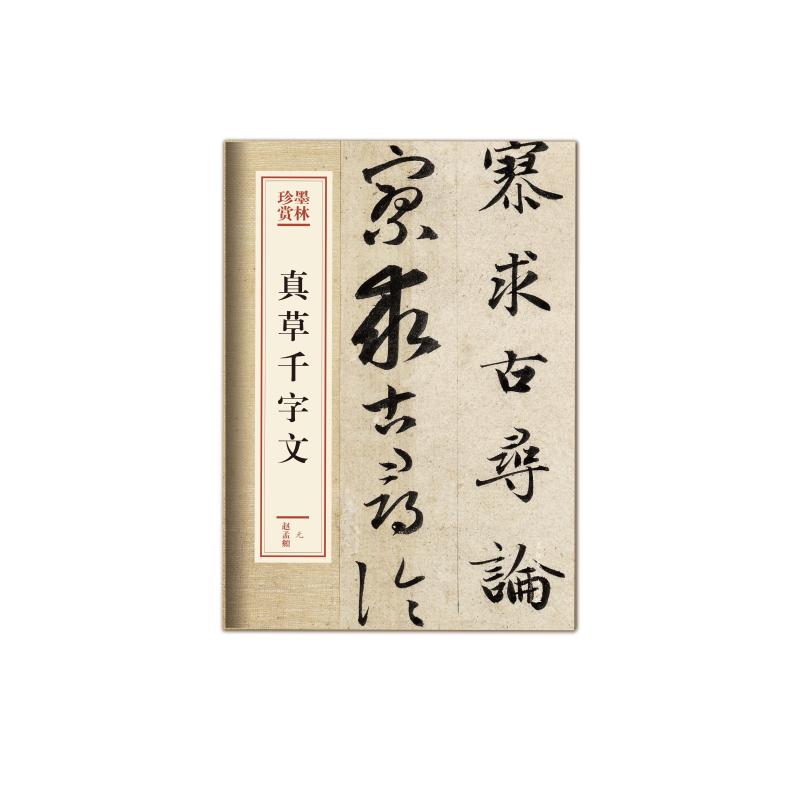 墨林
珍赏
真草千字文
元
赵孟頫
寮求古尋論
寮求古尋論